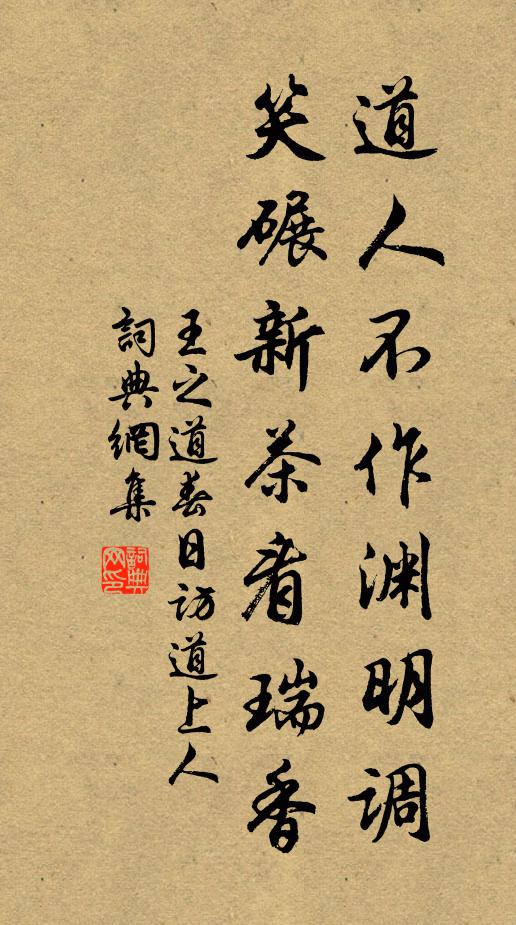 道人不作渊明调
笑碾新茶看瑞香
王之道春日访道上人
詞典網集
詞典网印